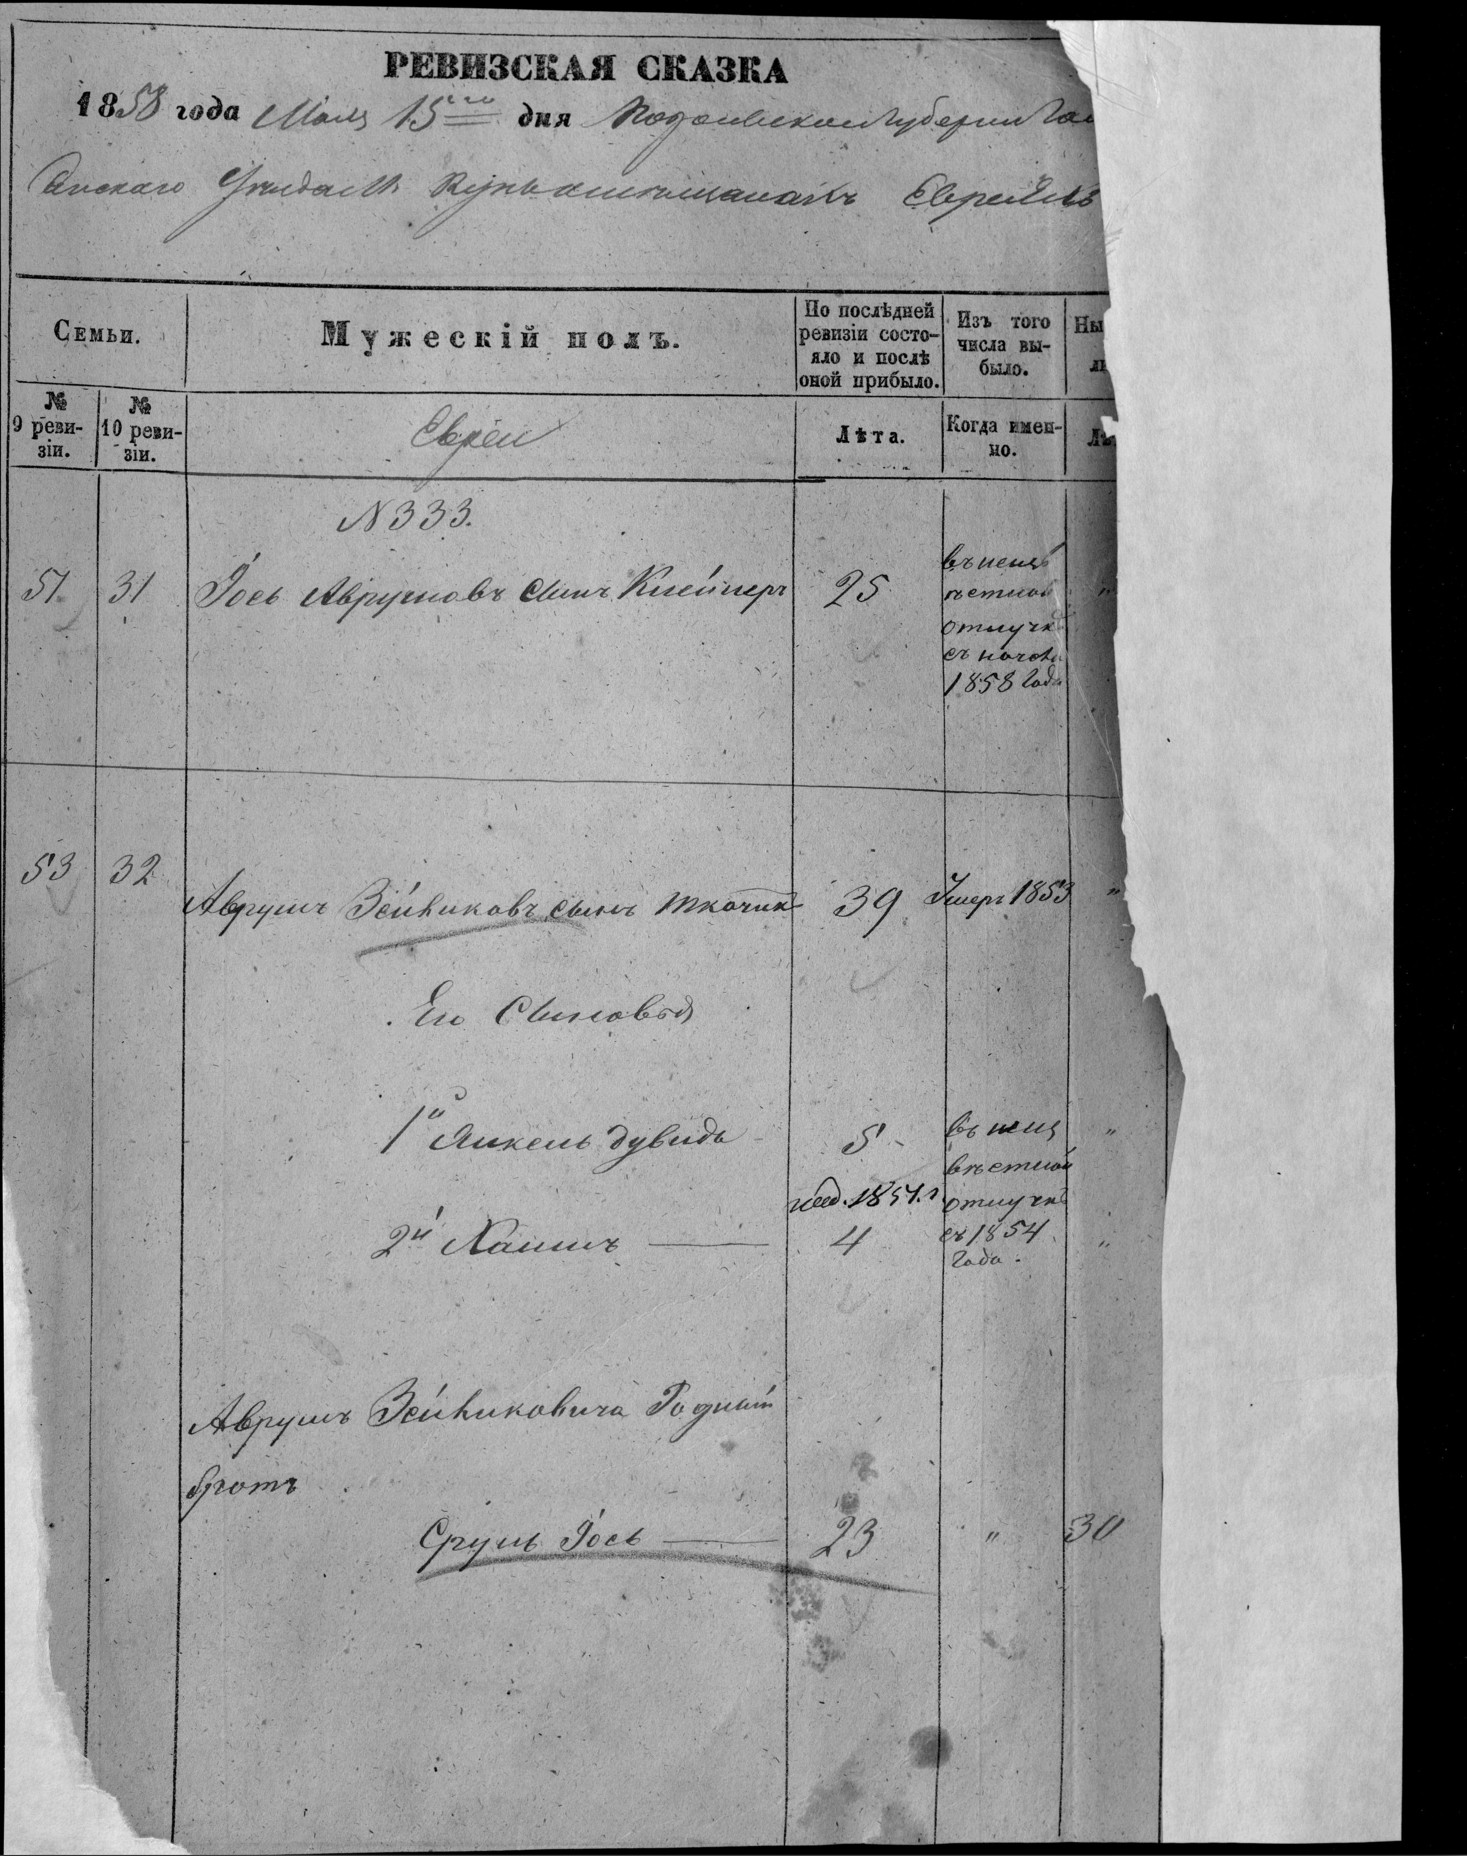 РЕВИЗСКАЯ СКАЗКА
1858 года Маія 15го дня Подольской Губерніи Гай
синскаго Уѣзда м. о мѣщанахъ Евреяхъ
Семьи.
Мужескій полъ.
По послѣдней ревизіи состо-
яло и послѣ
оной прибыло.
Изъ того
числа вы-
было.
Ны
№
9 реви-
зіи.
№
10 реви-
зіи.
Евреи
Лѣта.
Когда имен-
но.
Лѣ
N 333.
51
31
Іось Аврумовъ сынъ Клейнеръ
25
въ неизв
ѣстной
отлучкѣ
съ начала
1858 Года
"
53
32
Аврумъ Зейликовъ сынъ Ткачикъ
39
Умеръ 1853
"
Его Сыновья
1й Янкель Дувидъ
5
въ неиз
вѣстной
отлучкѣ
съ 1854
Года.
"
2й Хаимъ
1851.г
4
"
Аврумъ Зейликовича Родный
братъ
Сруль Іось
23
"
30